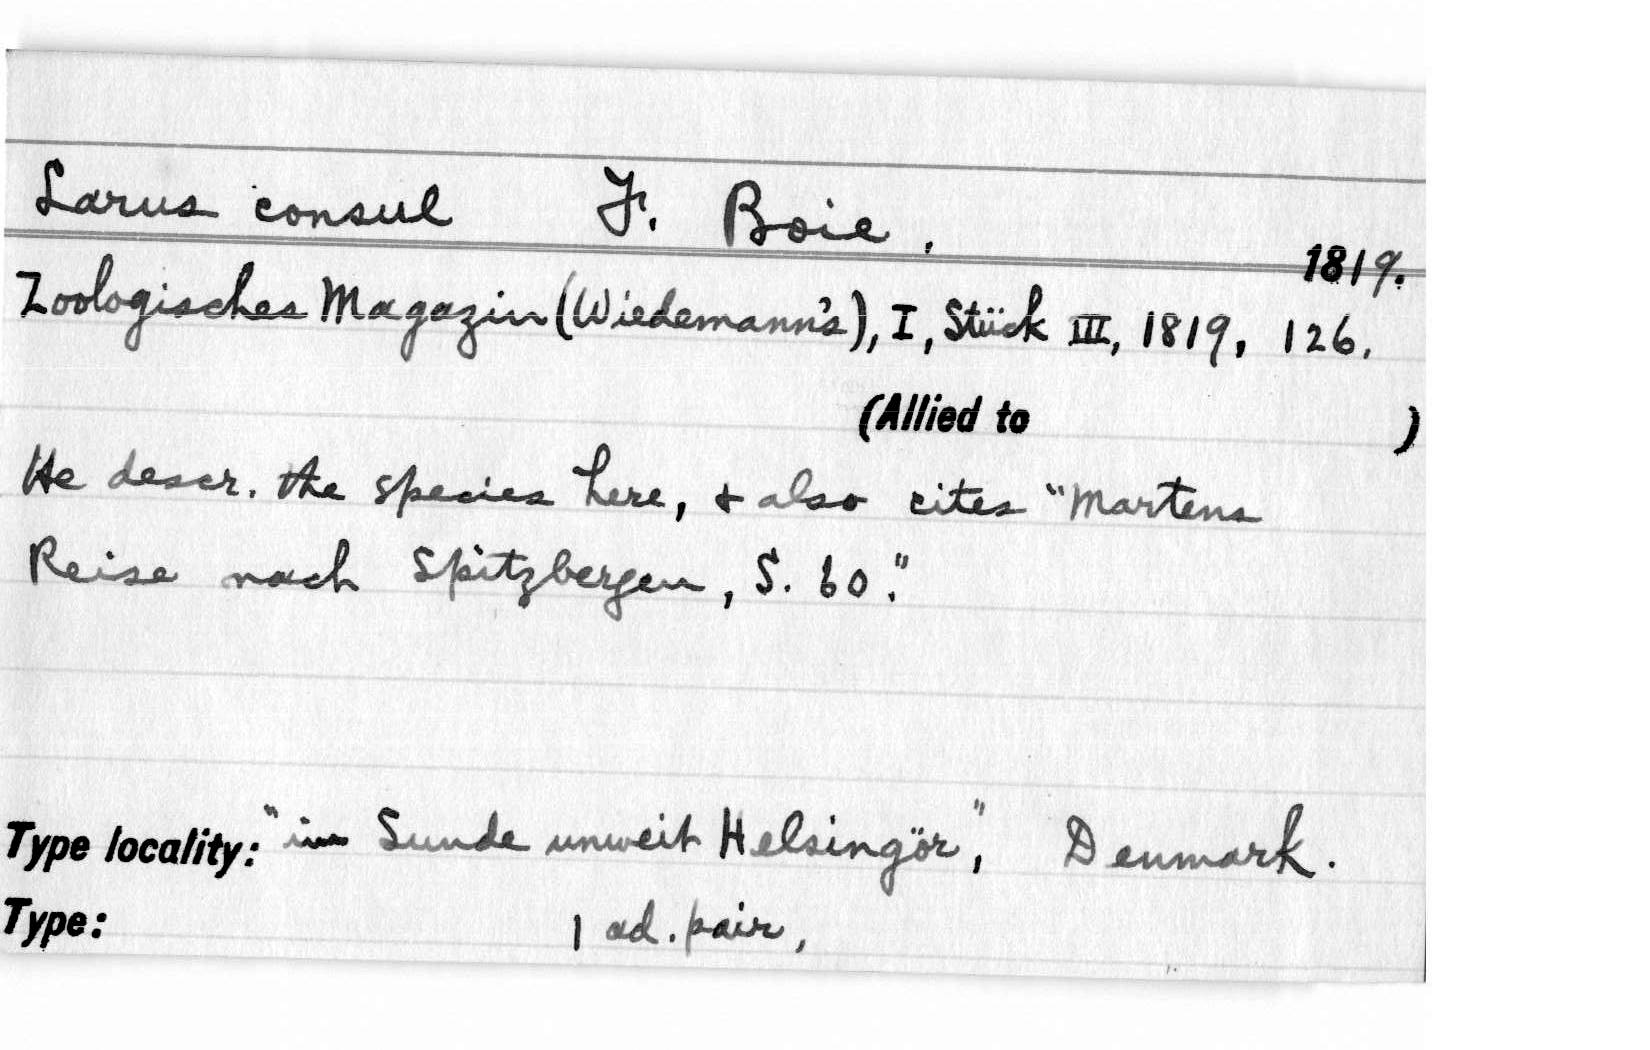 Larus consul F. Boie.
1819.
Zoologisches Magazin (Wiedemann's), I, Stück III, 1819, 126.
(Allied to )
He descr. the species here, + also cites "Martens
Reise nach Spitzbergen, S. 60."
Type locality: "im Sunde unweit Helsingör," Denmark.
Type: 1 ad. pair,